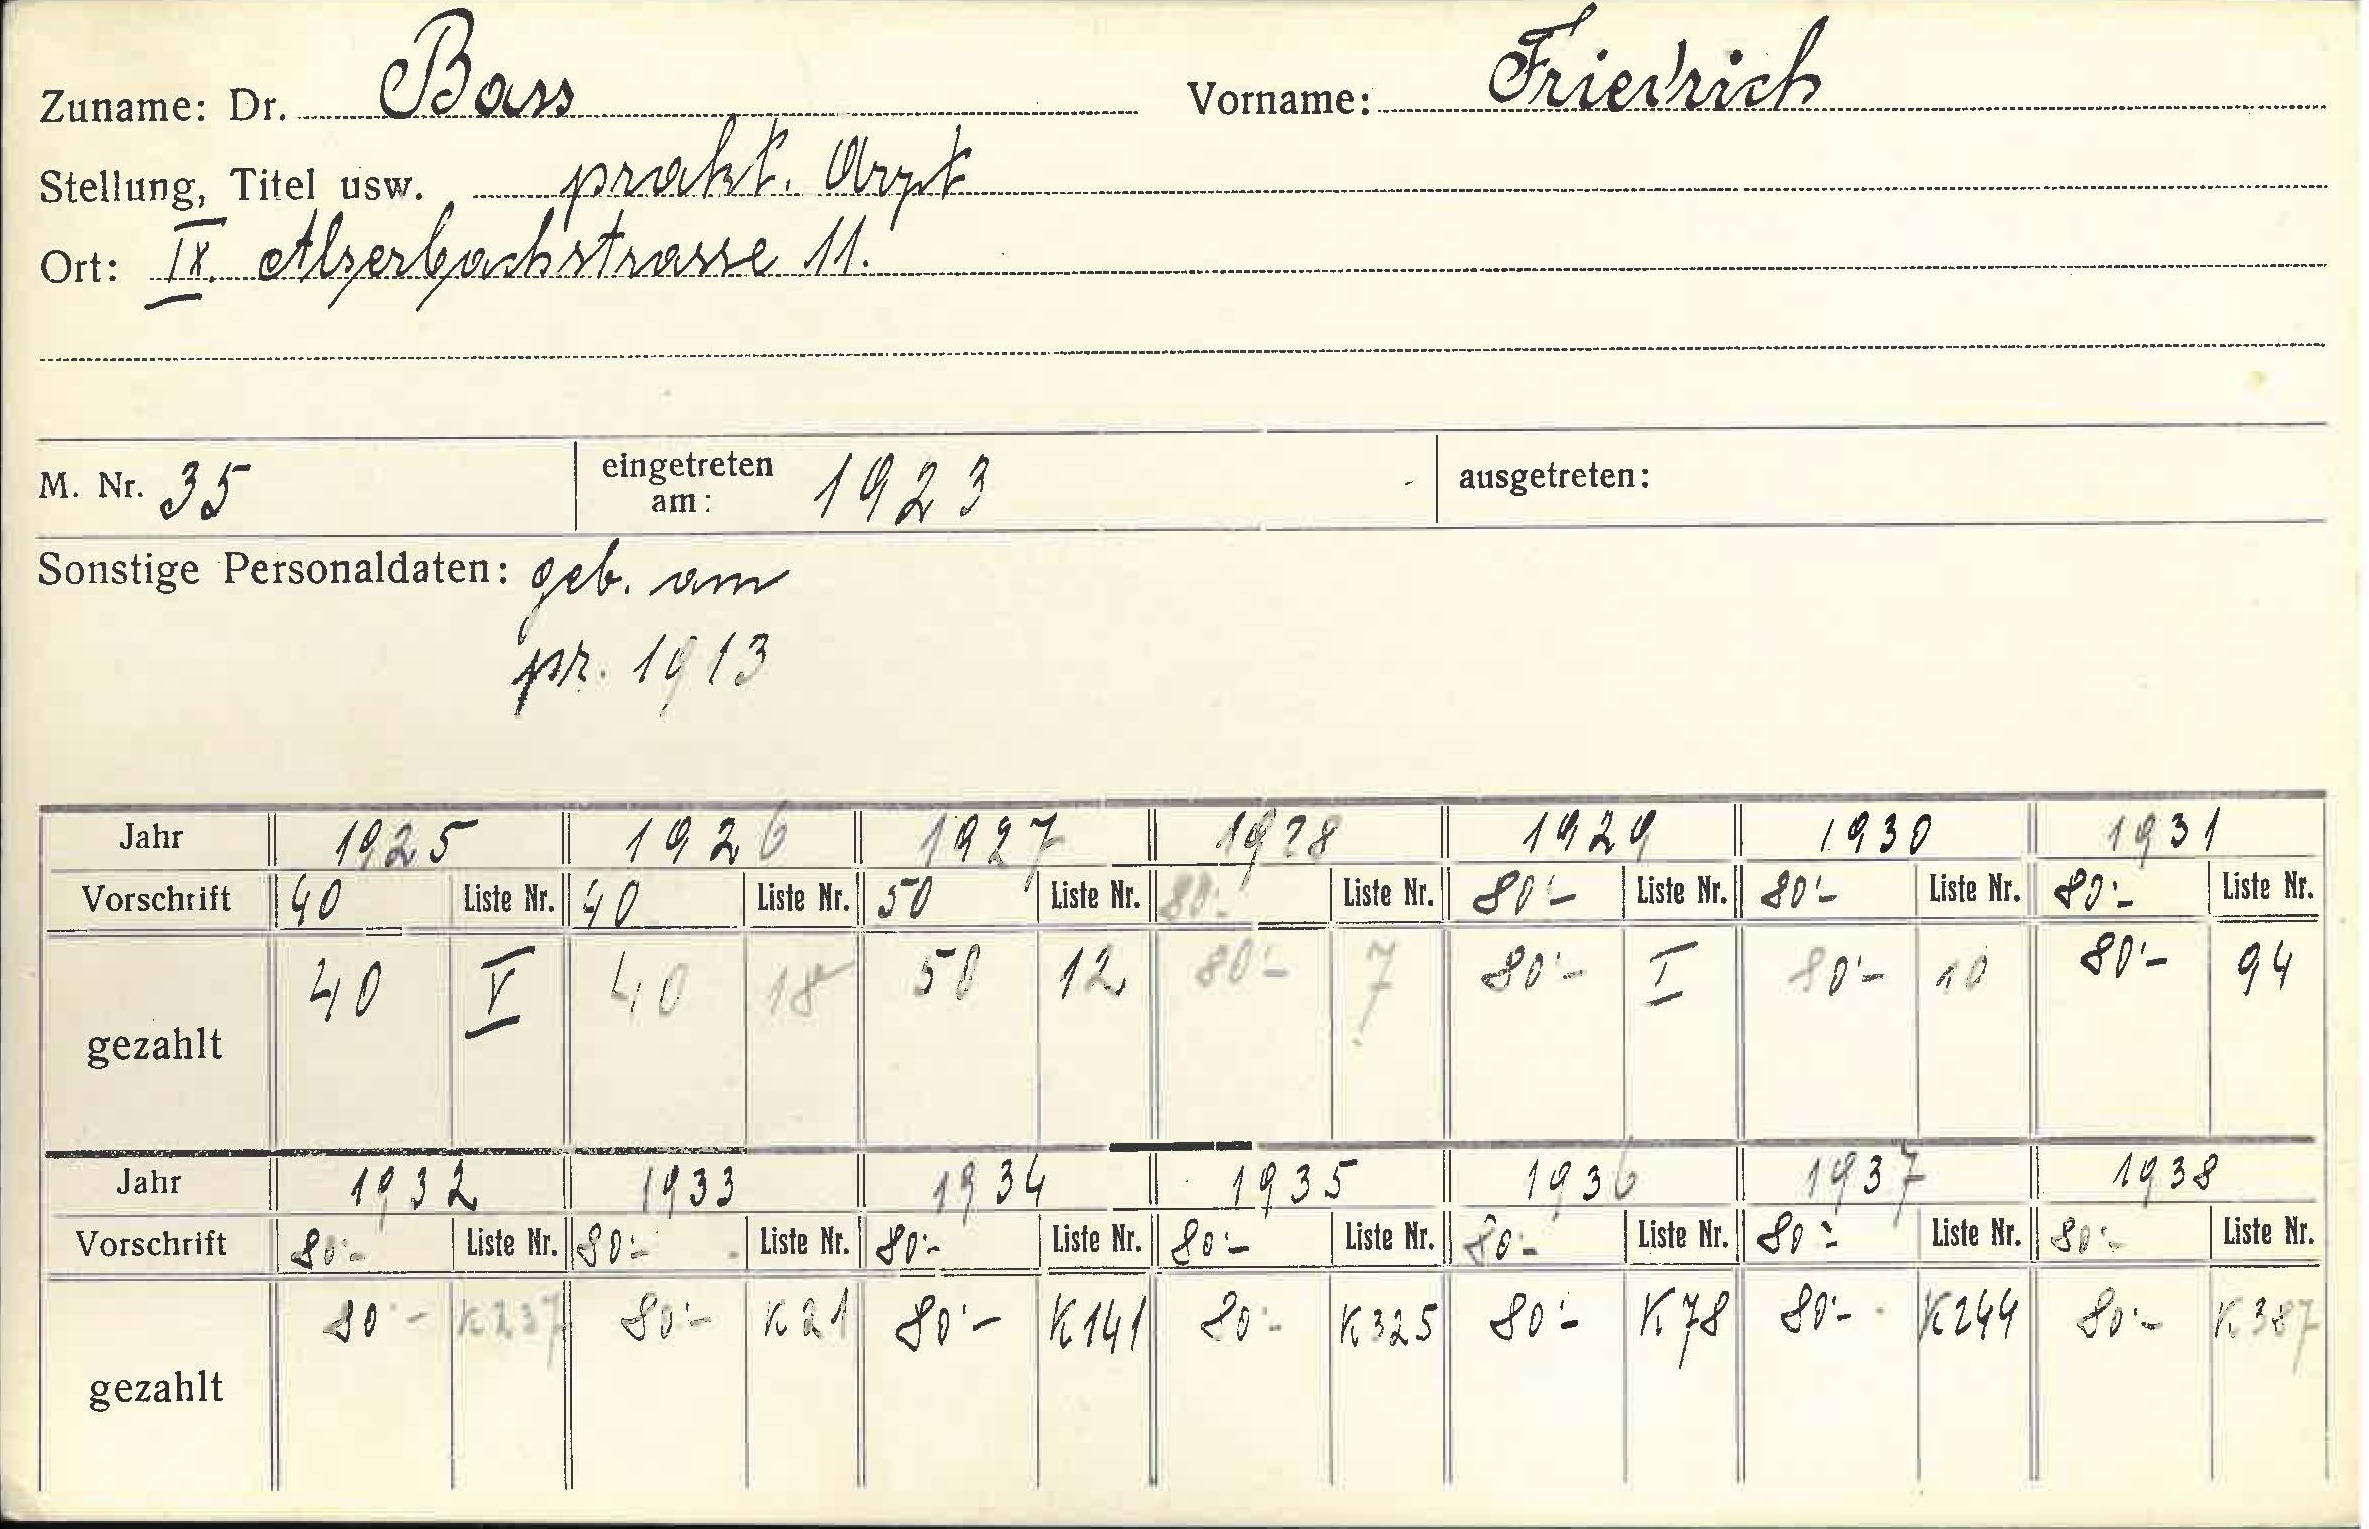 Zuname: Dr. Bass Vorname: Friedrich
Stellung, Titel usw. prakt. Arzt
Ort: IX. Alserbachstrasse 11.
M. Nr. 35 eingetreten am: 1923 ausgetreten:
Sonstige Personaldaten: geb. am
pr. 1913
Jahr 1925 1926 1927 1928 1929 1930 1931
Vorschrift 40 Liste Nr. 40 Liste Nr. 50 Liste Nr. 80'- Liste Nr. 80'- Liste Nr. 80'- Liste Nr. 80'- Liste Nr.
gezahlt 40 V 40 18 50 12 80'- 7 80'- I 80'- 10 80'- 94
Jahr 1932 1933 1934 1935 1936 1937 1938
Vorschrift 80'- Liste Nr. 80'- Liste Nr. 80'- Liste Nr. 80'- Liste Nr. 80'- Liste Nr. 80'- Liste Nr. 80'- Liste Nr.
gezahlt 80'- K237 80'- K21 80'- K141 80'- K325 80'- K78 80'- K244 80'- K387